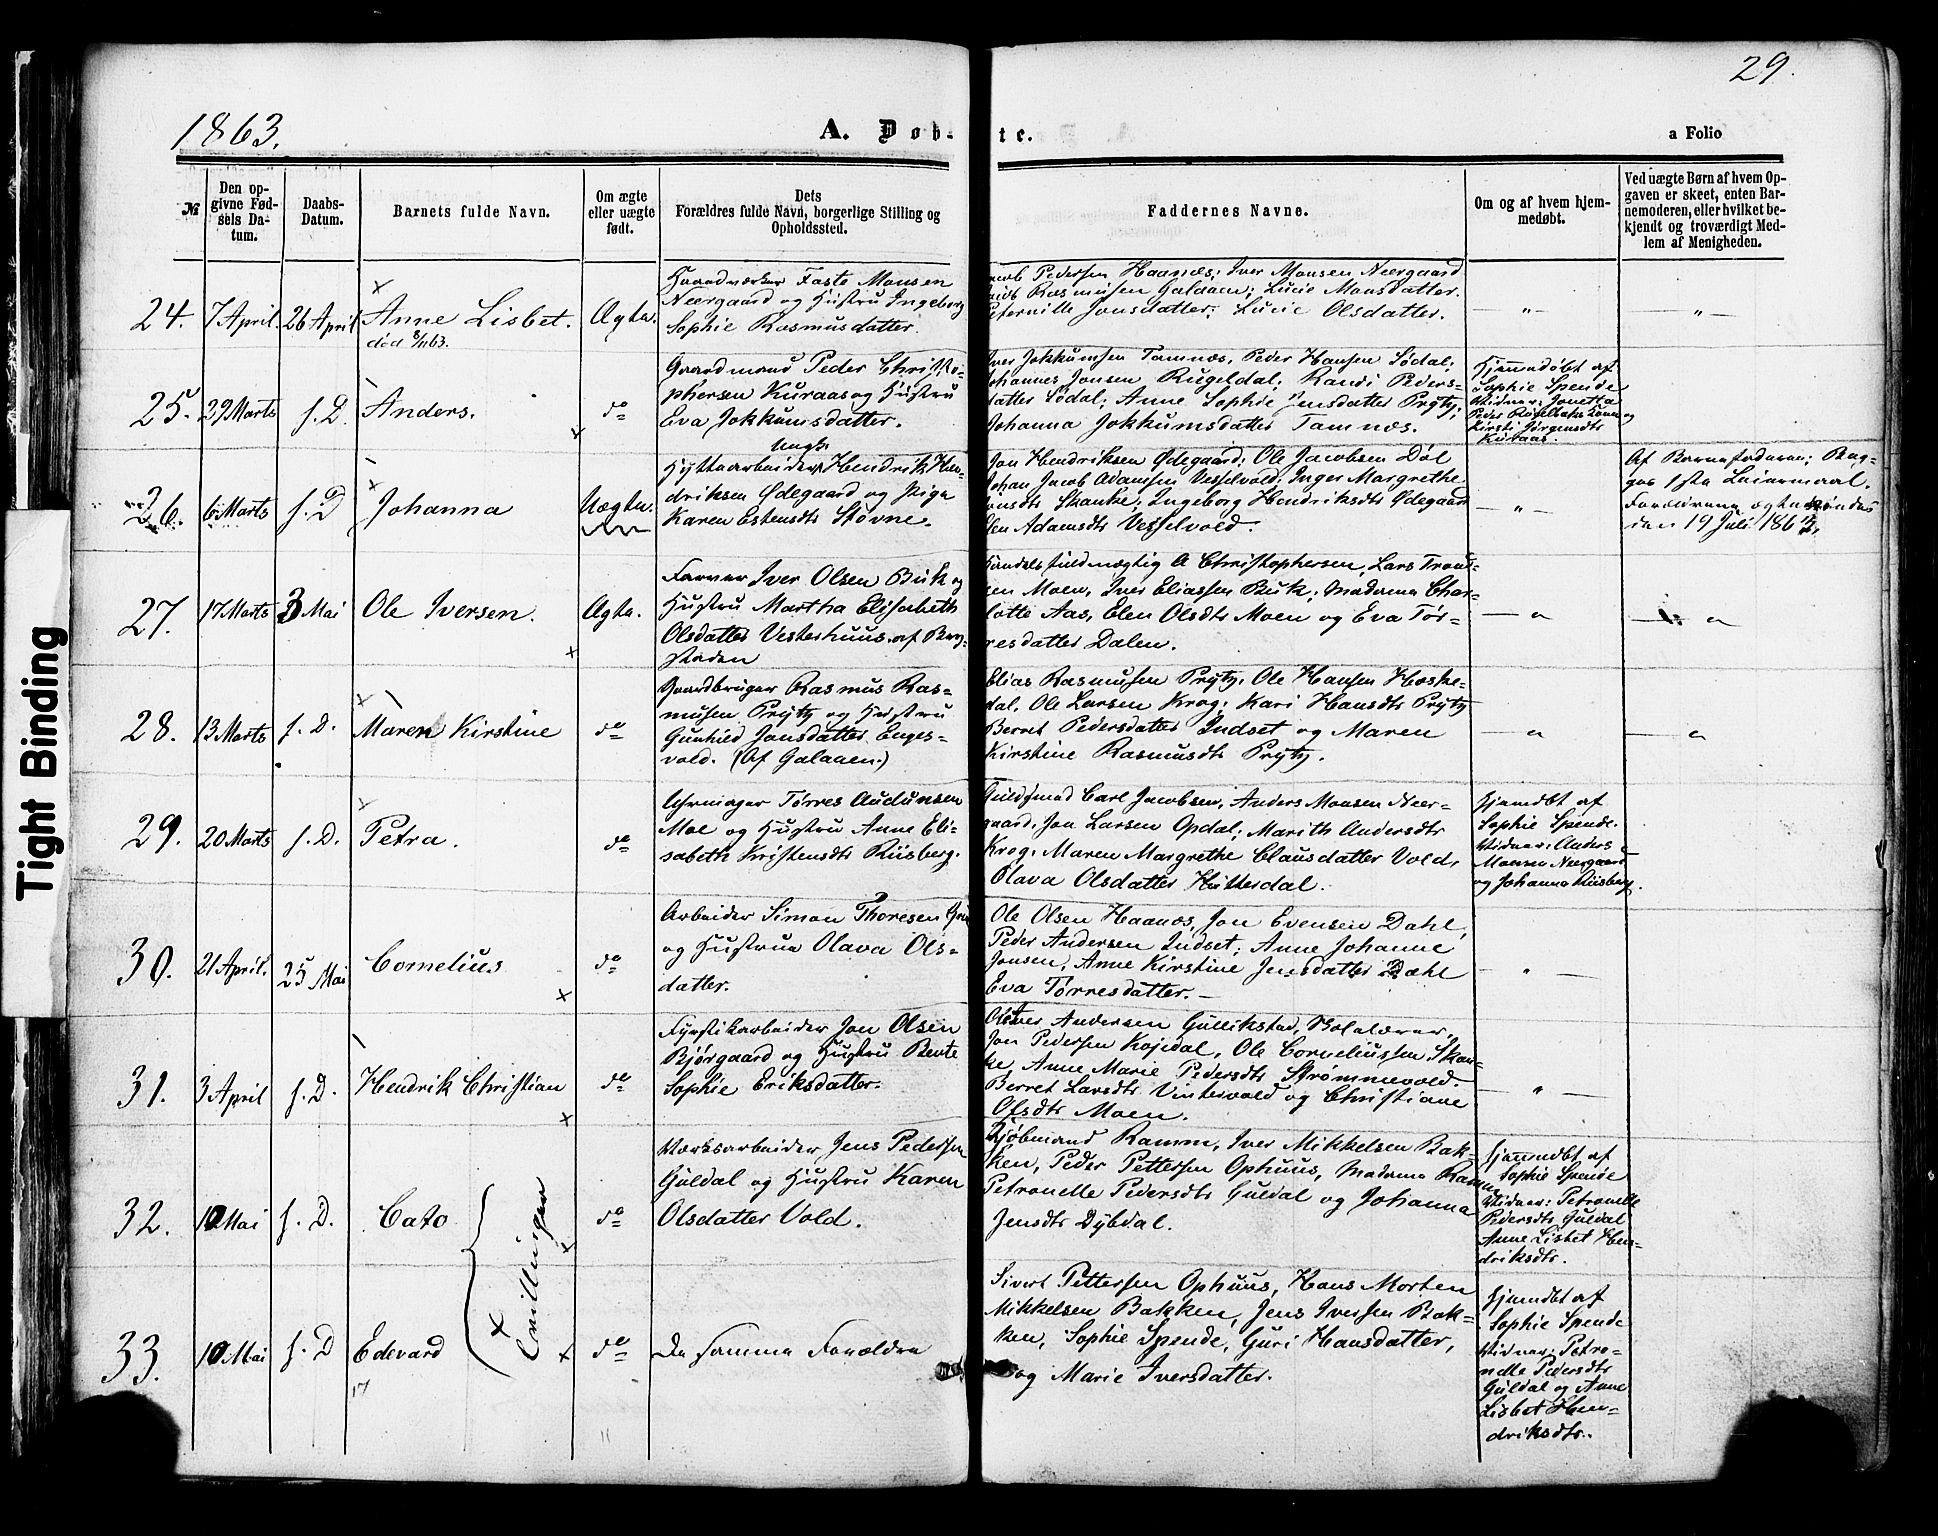 29.
1863.
A. Døb-
te.
a Folio
№
Den op-
givne Fød-
sels Da-
tum.
Daabs-
Datum.
Barnets fulde Navn.
Om ægte
eller uægte
født.
Dets
Forældres fulde Navn, borgerlige Stilling og
Opholdssted.
Faddernes Navne.
Om og af hvem hjem-
medøbt.
Ved uægte Børn af hvem Op-
gaven er skeet, enten Bar-
nemoderen, eller hvilket be-
kjendt og troværdigt Med-
lem af Menigheden.
24.
7 April.
26 April
Anne Lisbet.
død 8/11 63.
Ægte.
Haandværker Faste Monsen
Neergaard og Hustru Ingeborg
Sophie Rasmusdatter.
Pedersen Haanæs; Iver Monsen Neergaard
Rasmusen Galaaen; Lucie Monsdatter.
Peternille Jonsdatter; Lucie Olsdatter.
— „ —
— „ —
25.
29 Marts
s. D.
Anders.
do
Gaardmand Peder Christo-
phersen Kuraas og Hustru
Eva Jokkumsdatter.
Iver Jokkumsen Tamnæs, Peder Hansen Sødal;
Johannes Jonsen Rugeldal; Randi Peders-
datter Sødal; Anne Sophie Jensdatter Prytz;
Johanna Jokkumsdatter Tamnæs.
Hjemmedøbt af
Sophie Spende
Vidner: Jonetta
Peder Kone og
Kirsti Jørgensdtr
Kuraas.
26.
6 Marts
s. D
Johanna
Uægte.
Ungk.
Hyttearbeider Hendrik Hen-
driksen Ødegaard og Pige
Karen Estensdtr Støvne.
Jon Hendriksen Ødegaard; Ole Jacobsen Døl
Johan Jacob Adamsen Vesselvold; Inger Margrethe
Jonsdtr Skanke; Ingeborg Hendriksdtr Ødegaard
Elen Adamsdtr Vesselvold.
— „ —
Af Barnefaderen; Beg-
ges 1ste Leiermaal.
Forældrene ægteviedes
den 19 Juli 1863.
27.
17 Marts
3 Mai
Ole Iversen.
Ægte.
Farver Iver Olsen Buk og
Hustru Martha Elisabeth
Olsdatter Vesterhuus. af Berg-
staden
Handelsfuldmægtig A Christophersen, Lars Trond-
sen Moen, Iver Eliassen Buk, Madame Char-
lotte Aas, Elen Olsdtr Moen og Eva Tør-
resdatter Dalen.
— „
— „
28.
13 Marts
s. D.
Maren Kirstine
do
Gaardbruger Rasmus Ras-
musen Prytz og Hustru
Gunhild Jonsdatter Enges-
vold. (Af Galaaen.)
Elias Rasmusen Prytz. Ole Hansen Hoske-
dal. Ole Larsen Krog; Kari Hansdtr Prytz
Berret Pedersdatter Indset og Maren
Kirstine Rasmusdtr Prytz.
— „ —
— „ —
29.
20 Marts
s. D.
Petra.
do
Uhrmager Tørres Audunsen
Moe og Hustru Anne Eli-
sabeth Kristensdtr Riisberg.
Guldsmed Carl Jacobsen, Anders Monsen Neer-
gaard. Jon Larsen Opdal; Marith Andersdtr
Krog. Maren Margrethe Clausdatter Vold,
Olava Olsdatter Hitterdal.
Hjemdbt af
Sophie Spende.
Vidner: Anders
Monsen Neergaard
og Johanna Riisberg.
30.
21 April.
25 Mai
Cornelius
do
Arbeider Simon Thoresen
og Hustrue Olava Ols-
datter.
Ole Olsen Haanæs, Jon Evensen Dahl,
Peder Andersen Indset; Anne Johanne
Jonsen, Anne Kirstine Jensdatter Dæhl
Eva Tørresdatter. —
— „ —
31.
3 April
s. D.
Hendrik Christian
do
Fyrstikarbeider Jon Olsen
Bjørgaard og Hustru Bente
Sophie Eriksdatter.
Andersen Gullikstad,
Jon Pedersen Kojedal, Ole Corneliussen Skan-
ke, Anne Marie Pedersdtr Strømmevold.
Berret Larsdtr Vintervold og Christiane
Olsdtr Moen.
— „ —
32.
10 Mai
s. D.
Cato
Tvillinger
do
Værksarbeider Jens Pedersen
Guldal og Hustru Karen
Olsdatter Vold.
Kjøbmand Ramm, Iver Mikkelsen Bak-
ken, Peder Pettersen Ophuus, Madame Ramm,
Petronelle Pedersdtr Guldal og Johanna
Jensdtr Dybdal.
Hjemmdbt af
Sophie Spende
Vidner: Petronelle
Pedersdtr Guldal
Anne Lisbet Hen-
driksdtr.
33.
10 Mai
s. D
Edevard
do
De samme Forældre
Sivert Pettersen Ophuus, Hans Morten
Mikkelsen Bakken, Jens Iversen Bak-
ken, Sophie Spende, Guri Hansdatter,
og Marie Iversdatter.
Hjemdbt af
Sophie Spende
Vidner: Petro-
nelle Pedersdtr
Guldal og Anne
Lisbet Hen-
driksdtr.
17
11
Tight Binding